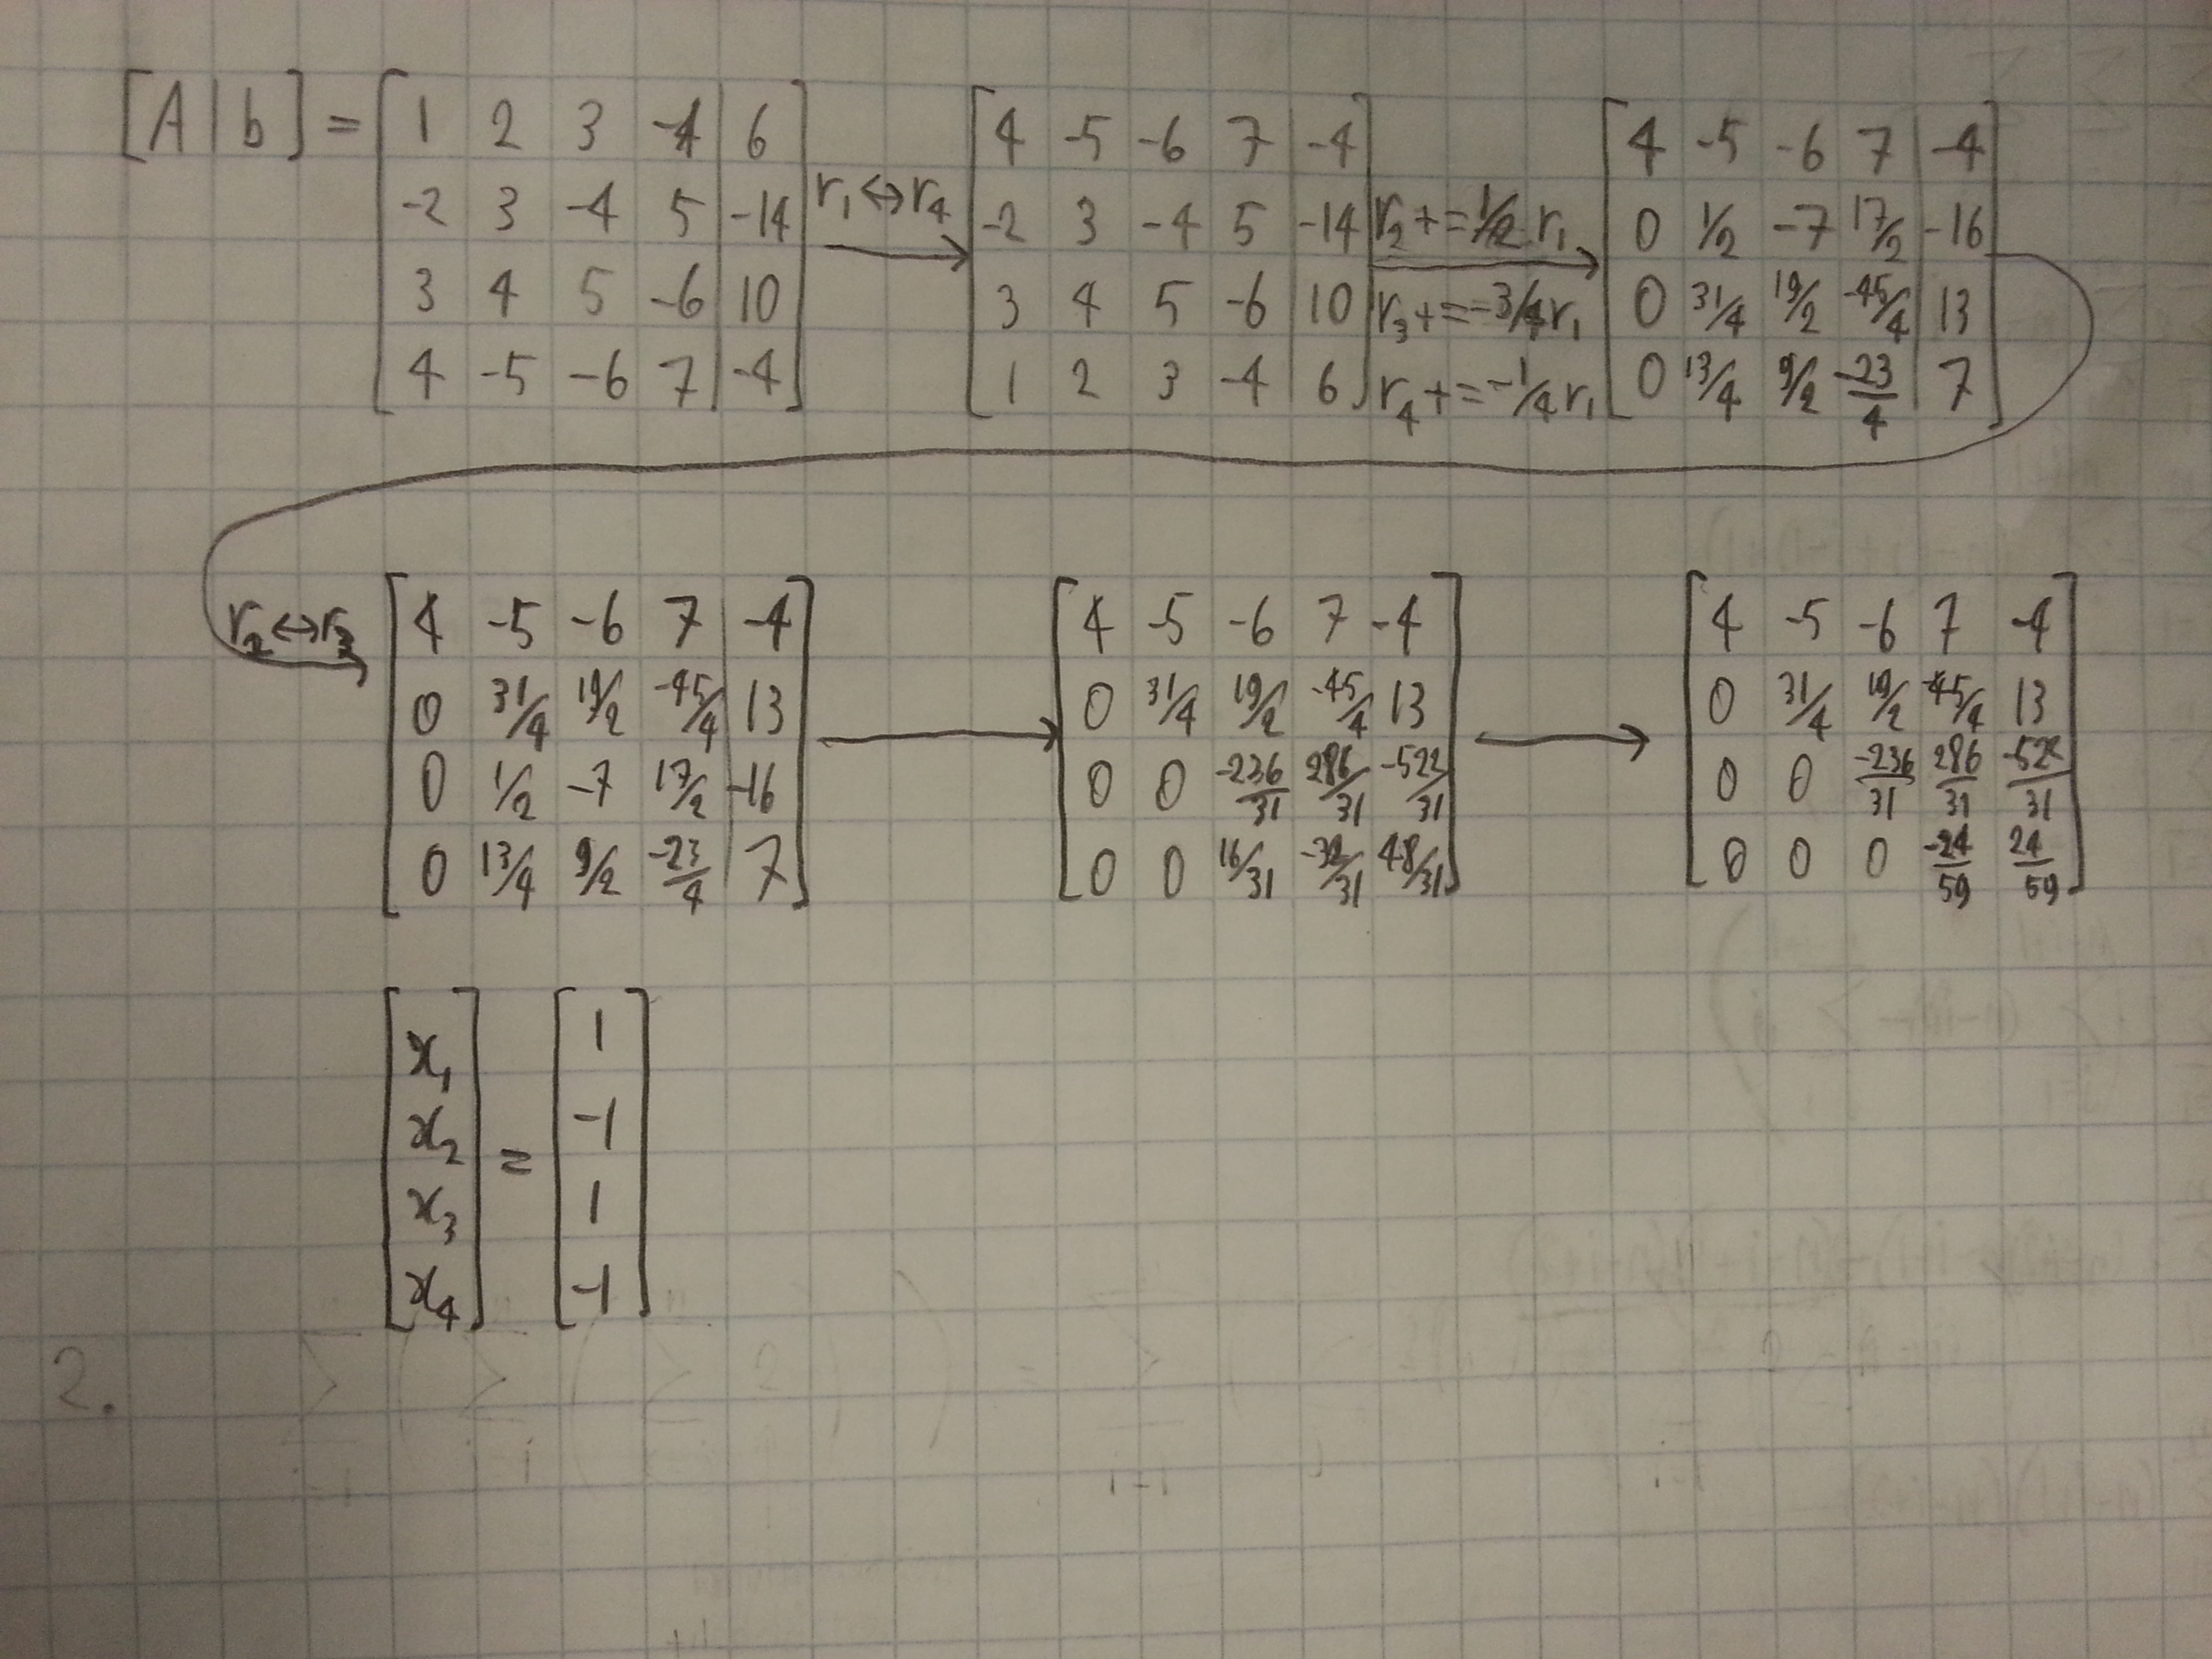 [A | b] =
[1 2 3 -4 | 6
-2 3 -4 5 | -14
3 4 5 -6 | 10
4 -5 -6 7 | -4]
r₁↔r₄
[4 -5 -6 7 | -4
-2 3 -4 5 | -14
3 4 5 -6 | 10
1 2 3 -4 | 6]
r₂+=1/2 r₁
r₃+=-3/4 r₁
r₄+=-1/4 r₁
[4 -5 -6 7 | -4
0 1/2 -7 17/2 | -16
0 31/4 19/2 -45/4 | 13
0 13/4 9/2 -23/4 | 7]
r₂↔r₃
[4 -5 -6 7 | -4
0 31/4 19/2 -45/4 | 13
0 1/2 -7 17/2 | -16
0 13/4 9/2 -23/4 | 7]
[4 -5 -6 7 -4
0 31/4 19/2 -45/4 13
0 0 -236/31 286/31 -522/31
0 0 16/31 -32/31 48/31]
[4 -5 -6 7 -4
0 31/4 19/2 -45/4 13
0 0 -236/31 286/31
0 0 0 -24/59 24/59]
[x₁
x₂
x₃
x₄]
=
[1
-1
1
-1]
2.